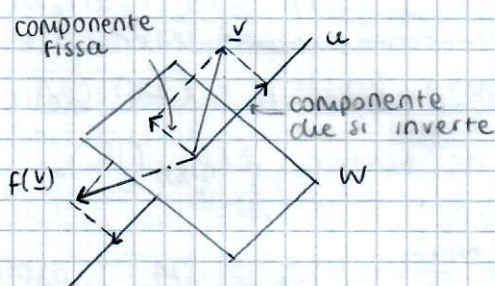 componente
fissa
v
u
componente
che si inverte
f(v)
W